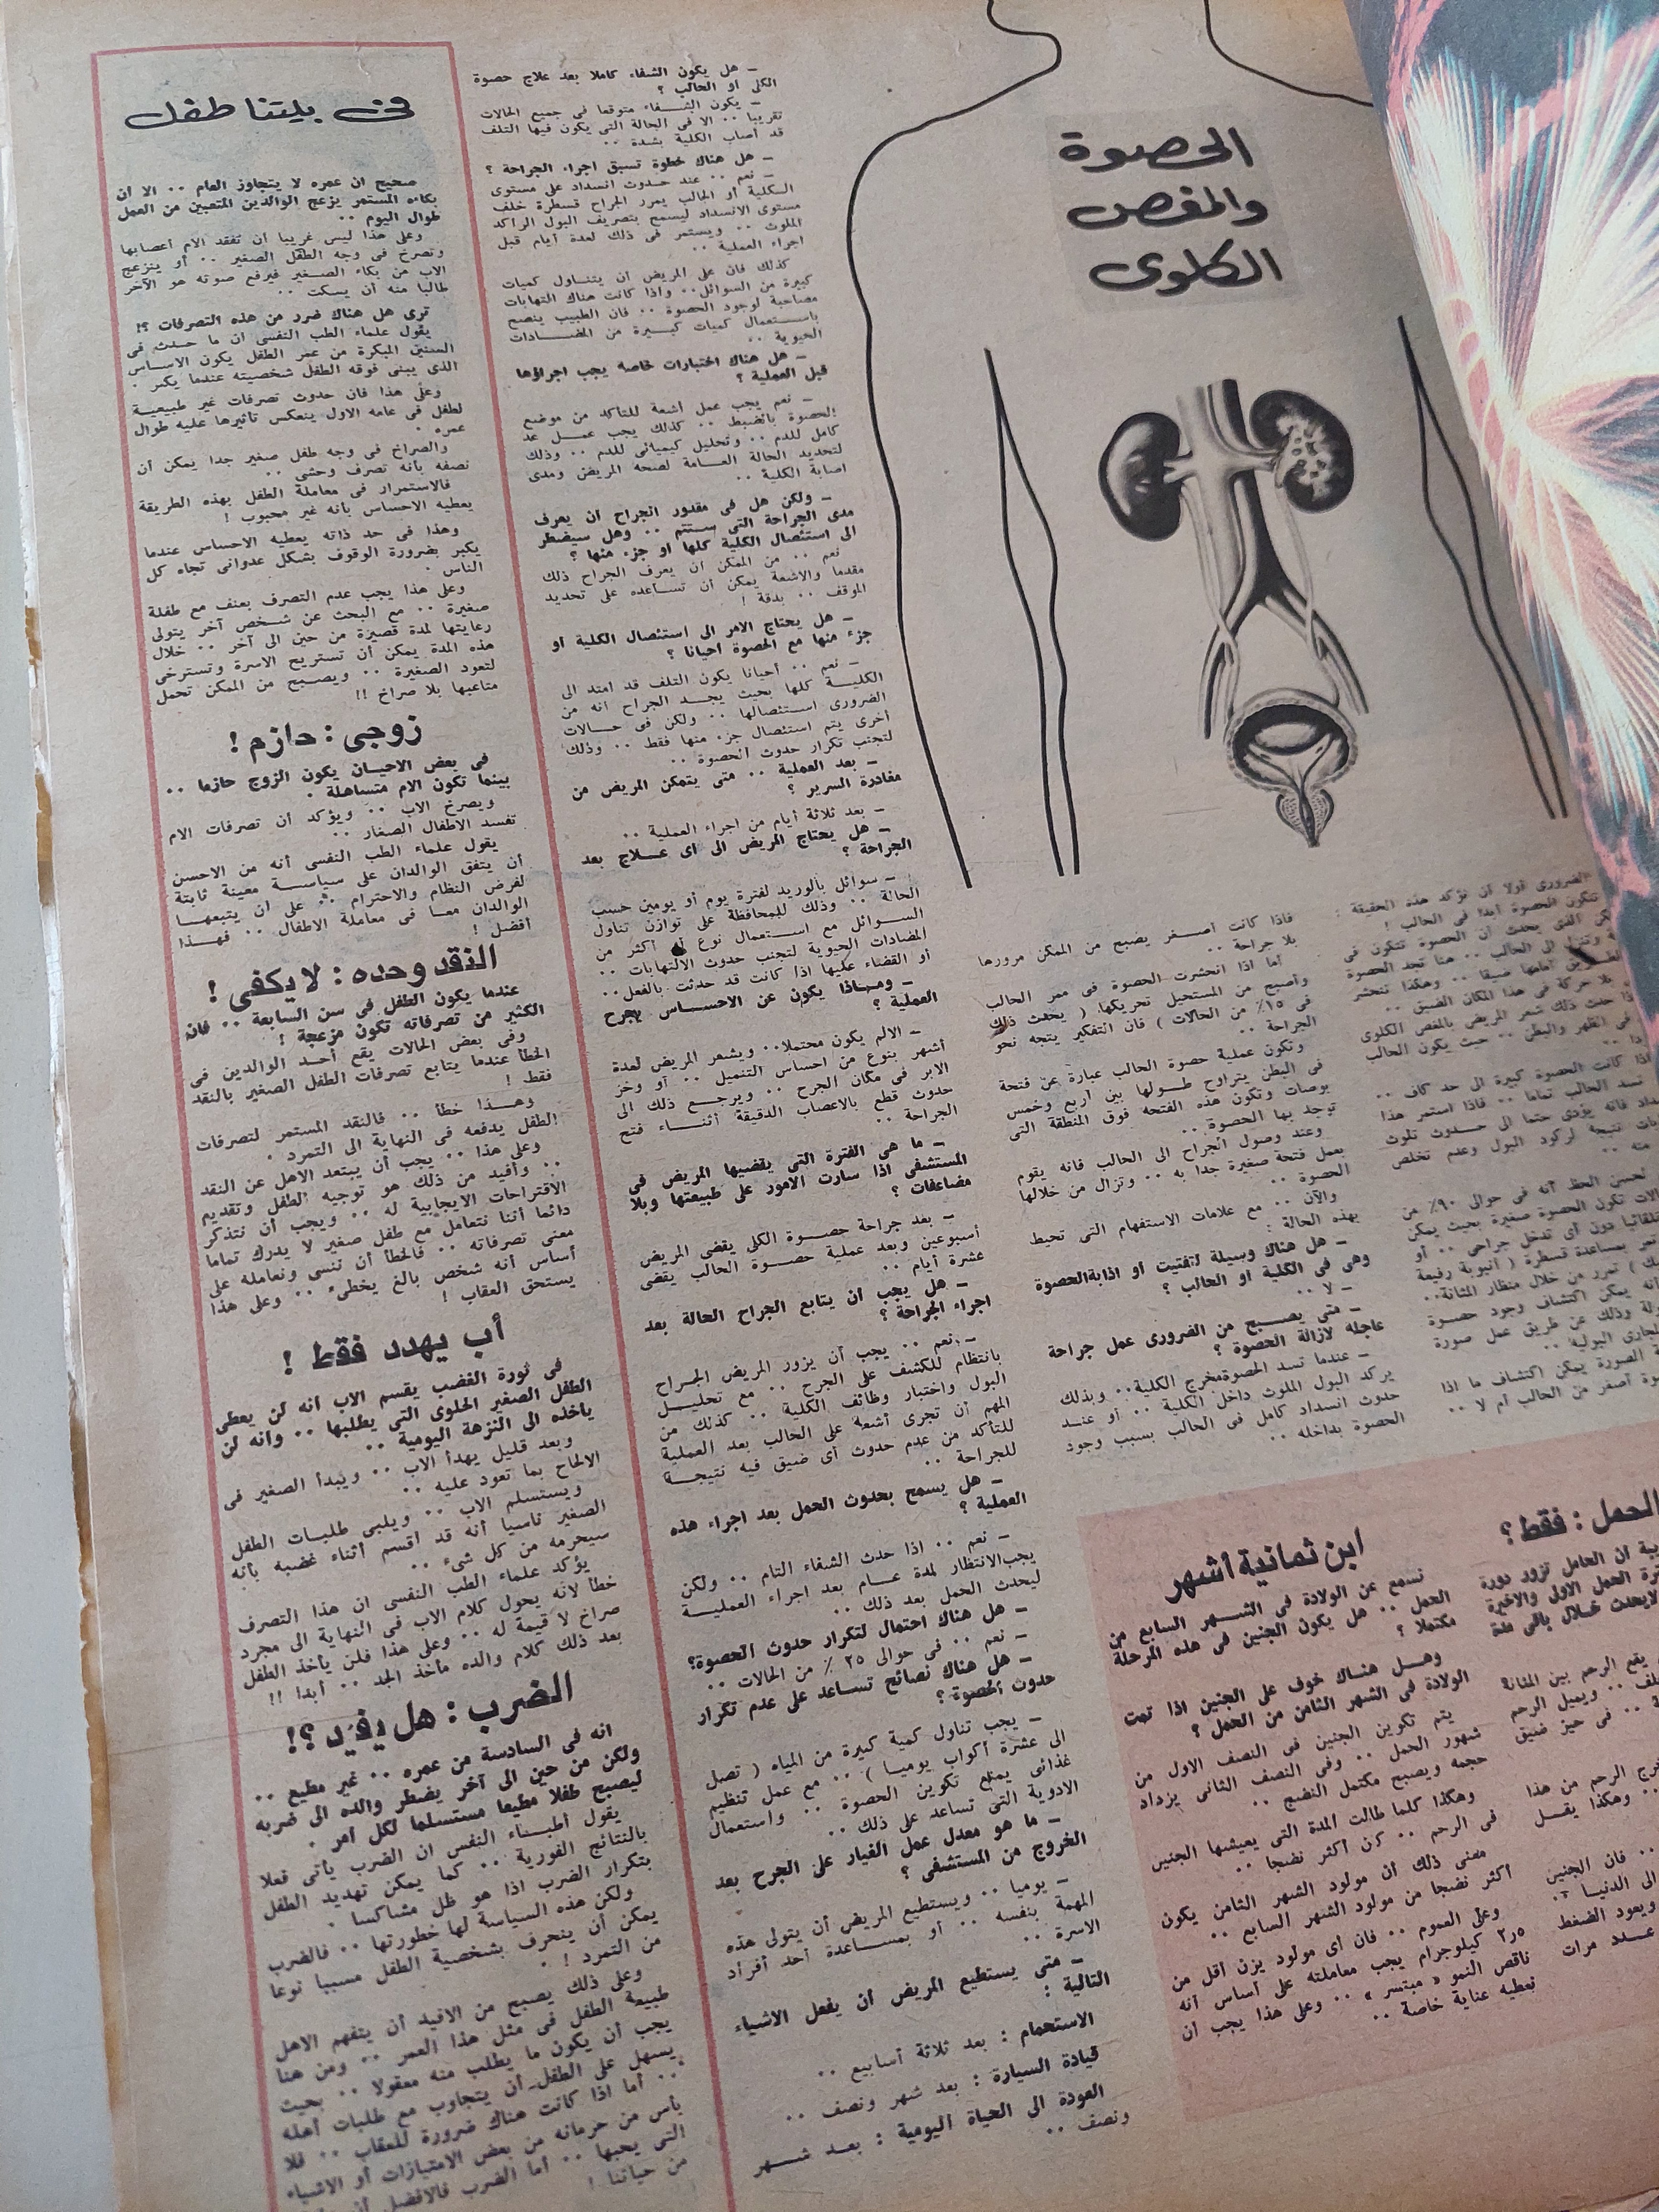 الحصوة
والمغص
الكلوى
الضرورى أولا أن نؤكد هذه الحقيقة :
تتكون الحصوة أبدا فى الحالب !
الذى يحدث أن الحصوة تتكون فى
الى الحالب .. هنا تجد الحصوة
أمامها ضيقا .. وهكذا تنحشر
بلا حركة فى هذا المكان الضيق ..
حدث ذلك شعر المريض بالمغص الكلوى
فى الظهر والبطن .. حيث يكون الحالب
اذا كانت الحصوة كبيرة الى حد كاف ..
تسد الحالب تماما .. فاذا استمر هذا
فانه يؤدى حتما الى حـــدوث تلوث
نتيجة لركود البول وعدم تخلص
منه ..
لحسن الحظ أنه فى حوالى ٩٠٪ من
تكون الحصوة صغيرة بحيث يمكن
تلقائيا دون أى تدخل جراحى .. أو
تمر بمساعدة قسطرة ( أنبوبة رفيعة
) تمرر من خلال منظار المثانة..
انه يمكن اكتشاف وجود حصــوة
وذلك عن طريق عمل صورة
المجارى البولية ..
الصورة يمكن اكتشاف ما اذا
أصغر من الحالب أم لا ..
فاذا كانت أصــغر يصبح من الممكن مرورها
بلا جراحة ..
أما اذا انحشرت الحصوة فى ممر الحالب
وأصبح من المستحيل تحريكها ( يحدث ذلك
فى ١٥٪ من الحالات ) فان التفكير يتجه نحو
الجراحة ..
وتكون عملية حصوة الحالب عبارة عن فتحة
فى البطن يتراوح طــولها بين أربع وخمس
بوصات وتكون هذه الفتحة فوق المنطقة التى
توجد بها الحصوة ..
وعند وصول الجراح الى الحالب فانه يقوم
بعمل فتحة صغيرة جدا به .. وتزال من خلالها
الحصوة ..
والآن .. مع علامات الاستفهام التى تحيط
بهذه الحالة :
– هل هناك وسيلة لتفتيت أو اذابةالحصوة
وهى فى الكلية أو الحالب ؟
– لا ..
– متى يصــبح من الضرورى عمل جراحة
عاجلة لازالة الحصوة ؟
– عندما تسد الحصوةمخرج الكلية.. وبذلك
يركد البول الملوث داخل الكلية .. أو عنــد
حدوث انسداد كامل فى الحالب بسبب وجود
الحصوة بداخله ..
– هل يكون الشفاء كاملا بعد علاج حصوة
الكلى أو الحالب ؟
– يكون الشــــفاء متوقعا فى جميع الحالات
تقريبا .. الا فى الحالة التى يكون فيها التلف
قد أصاب الكلية بشدة ..
– هل هناك خطوة تسبق اجراء الجراحة ؟
– نعم .. عند حــدوث انسداد على مستوى
الكلية أو الحالب يمرر الجراح قسطرة خلف
مستوى الانسداد ليسمح بتصريف البول الراكد
الملوث .. ويستمر فى ذلك لعدة أيام قبل
اجراء العملية ..
كذلك فان على المريض أن يتنــاول كميات
كبيرة من السوائل.. واذا كانت هناك التهابات
مصاحبة لوجود الحصوة .. فان الطبيب ينصح
باســـتعمال كميات كبـــيرة من المضـــادات
الحيوية ..
– هل هناك اختبارات خاصة يجب اجراؤها
قبل العملية ؟
– نعم يجب عمل أشعة للتأكد من موضع
الحصوة بالضبط .. كذلك يجب عمـــل عد
كامل للدم .. وتحليل كيميائى للدم .. وذلك
لتحديد الحالة العـــامة لصحة المريض ومدى
اصابة الكلية ..
– ولكن هل فى مقدور الجراح أن يعرف
مدى الجراحة التى ســـتتم .. وهل سيضطر
الى استئصال الكلية كلها أو جزء منها ؟
نعم .. من الممكن أن يعرف الجراح ذلك
مقدما والأشعة يمكن أن تســاعده على تحديد
الموقف .. بدقة !
– هل يحتاج الامر الى استئصال الكلية أو
جزء منها مع الحصوة أحيانا ؟
– نعم .. أحيانا يكون التلف قد امتد الى
الكليـــة كلها بحيث يجــد الجراح أنه من
الضرورى اســـتئصالها .. ولكن فى حـــالات
أخرى يتم استئصال جزء منها فقط .. وذلك
لتجنب تكرار حدوث الحصوة ..
– بعد العملية .. متى يتمكن المريض من
مغادرة السرير ؟
– بعد ثلاثة أيام من اجراء العملية ..
– هل يحتاج المريض الى أى عـــلاج بعد
الجراحة ؟
– سوائل بالوريد لفترة يوم أو يومين حسب
الحالة .. وذلك للمحافظة على توازن تناول
الســوائل مع اســـتعمال نوع أو أكثر من
المضادات الحيوية لتجنب حدوث الالتهابات ..
أو القضاء عليها اذا كانت قد حدثت بالفعل..
– ومـــاذا يكون عن الاحســاس بجرح
العملية ؟
– الالم يكون محتملا.. ويشعر المريض لعدة
أشهر بنوع من احساس التنميل .. أو وخز
الابر فى مكان الجرح .. ويرجـــع ذلك الى
حدوث قطع بالاعصاب الدقيقة أثنـــاء فتح
الجراحة ..
– ما هى الفترة التى يقضيها المريض فى
المستشفى اذا سارت الامور على طبيعتها وبلا
مضاعفات ؟
– بعد جراحة حصـــوة الكلى يقضى المريض
أسبوعين وبعد عملية حصــوة الحالب يقضى
عشرة أيام ..
– هل يجب أن يتابع الجراح الحالة بعد
اجراء الجراحة ؟
– نعم .. يجب أن يزور المريض الجــراح
بانتظام للكشف على الجرح .. مع تحليـــل
البول واختبار وظائف الكلية .. كذلك من
المهم أن تجرى أشعة على الحالب بعد العملية
للتأكد من عدم حدوث أى ضيق فيه نتيجـــة
للجراحة ..
– هل يسمح بحدوث الحمل بعد اجراء هذه
العملية ؟
– نعم .. اذا حدث الشفاء التام .. ولكن
يجب الانتظار لمدة عـــام بعد اجراء العمليـــة
ليحدث الحمل بعد ذلك ..
– هل هناك احتمال لتكرار حدوث الحصوة؟
– نعم .. فى حوالى ٢٥ ٪ من الحالات ..
– هل هناك نصائح تســاعد على عدم تكرار
حدوث الحصوة ؟
– يجب تناول كمية كبيرة من المياه ( تصل
الى عشرة أكواب يوميــا ) .. مع عمل تنظيم
غذائى يمنع تكوين الحصوة .. واستعمال
الادوية التى تساعد على ذلك ..
– ما هو معدل عمل الغيار على الجرح بعد
الخروج من المستشفى ؟
– يوميا .. ويستطيع المريض أن يتولى هذه
المهمة بنفسه .. أو بمســـاعدة أحد أفراد
الاسرة ..
– متى يستطيع المريض أن يفعل الاشياء
التالية :
الاستحمام : بعد ثلاثة أسابيع ..
قيادة السيارة : بعد شهر ونصف ..
العودة الى الحياة اليومية : بعــد شـــهر
ونصف ..
فى بيتنا طفل
صحيح أن عمره لا يتجاوز العام .. الا أن
بكاءه المستمر يزعج الوالدين المتعبين من العمل
طوال اليوم ..
وعلى هذا ليس غريبا أن تفقد الام أعصابها
وتصرخ فى وجه الطفل الصغير .. أو ينزعج
الاب من بكاء الصــغير فيرفع صوته هو الآخر
طالبا منه أن يسكت ..
ترى هل هناك ضرر من هذه التصرفات ؟!
يقول علماء الطب النفسى ان ما حــدث فى
السنين المبكرة من عمر الطفل يكون الاســاس
الذى يبنى فوقه الطفل شخصيته عندما يكبر .
وعلى هذا فان حدوث تصرفات غير طبيعيــة
لطفل فى عامه الاول ينعكس تأثيرها عليه طوال
عمره .
والصراخ فى وجه طفل صغير جدا يمكن أن
نصفه بأنه تصرف وحشى ..
فالاستمرار فى معاملة الطفل بهذه الطريقة
يعطيه الاحساس بأنه غير محبوب !
وهذا فى حد ذاته يعطيه الاحساس عندما
يكبر بضرورة الوقوف بشكل عدوانى تجاه كل
الناس .
وعلى هذا يجب عدم التصرف بعنف مع طفلة
صغيرة .. مع البحث عن شــخص آخر يتولى
رعايتها لمدة قصيرة من حين الى آخر .. خلال
هذه المدة يمكن أن تستريح الاسرة وتسترخى
لتعود الصغيرة .. ويصــبح من الممكن تحمل
متاعبها بلا صراخ !!
زوجى : حازم !
فى بعض الاحيــان يكون الزوج حازما ..
بينما تكون الام متساهلة .
ويصرخ الاب .. ويؤكد أن تصرفات الام
تفسد الاطفال الصغار ..
يقول علماء الطب النفسى أنه من الاحسن
أن يتفق الوالدان على سياســـة معينة ثابتة
لفرض النظام والاحترام .. على أن يتبعهـــا
الوالدان معـــا فى معاملة الاطفال .. فهـــذا
أفضل !
النقد وحده : لا يكفى !
عندما يكون الطفل فى سن السابعة .. فان
الكثير من تصرفاته تكون مزعجة !
وفى بعض الحالات يقع أحــد الوالدين فى
الخطأ عندما يتابع تصرفات الطفل الصغير بالنقد
فقط !
وهـــذا خطأ .. فالنقد المستمر لتصرفات
الطفل يدفعه فى النهاية الى التمرد .
وعلى هذا .. يجب أن يبتعد الاهل عن النقد
.. وأفيد من ذلك هو توجيه الطفل وتقديم
الاقتراحات الايجابية له .. ويجب أن نتذكر
دائما أننا نتعامل مع طفل صغير لا يدرك تماما
معنى تصرفاته .. فالخطأ أن ننسى ونعامله على
أساس أنه شخص بالغ يخطىء .. وعلى هذا
يستحق العقاب !
أب يهدد فقط !
فى ثورة الغضب يقسم الاب أنه لن يعطى
الطفل الصغير الحلوى التى يطلبها .. وانه لن
يأخذه الى النزهة اليومية ..
وبعد قليل يهدأ الاب .. ويبدأ الصغير فى
الالحاح بما تعود عليه ..
ويستسلم الاب .. ويلبى طلبــات الطفل
الصغير ناسيا أنه قد أقسم أثناء غضبه بأنه
سيحرمه من كل شىء ..
يؤكد علماء الطب النفسى ان هذا التصرف
خطأ لأنه يحول كلام الاب فى النهاية الى مجرد
صراخ لا قيمة له .. وعلى هذا فلن يأخذ الطفل
بعد ذلك كلام والده مأخذ الجد .. أبدا !!
الضرب : هل يفيد ؟!
انه فى السادسة من عمره .. غير مطيع ..
ولكن من حين الى آخر يضطر والده الى ضربه
ليصبح طفلا مطيعا مستسلما لكل أمر .
يقول أطبــاء النفس ان الضرب يأتى فعلا
بالنتائج الفورية .. كما يمكن تهديد الطفل
بتكرار الضرب اذا هو ظل مشاكسا .
ولكن هذه السياسة لها خطورتها .. فالضرب
يمكن أن ينحرف بشخصية الطفل مسببا نوعا
من التمرد !
وعلى ذلك يصبح من الافيد أن يتفهم الاهل
طبيعة الطفل فى مثل هذا العمر .. ومن هنا
يجب أن يكون ما يطلب منه معقولا .. بحيث
يسهل على الطفل أن يتجاوب مع طلبات أهله
.. أما اذا كانت هناك ضرورة للعقاب .. فلا
بأس من حرمانه من بعض الامتيازات أو الاشياء
التى يحبها .. أما الضرب فالافضل أن
من حياتنا !
الحمل : فقط ؟
أن الحامل تزور دورة
فترة الحمل الاولى والاخيرة
لايحدث خــلال باقى مدة
يقع الرحم بين المثانة
.. ويميل الرحم
.. فى حيز ضيق
يخرج الرحم من هذا
.. وهكذا يقـــل
.. فان الجنين
الى الدنيــا ..
ويعود الضغط
عـــدد مرات
ابن ثمانية أشهر
نسمع عن الولادة فى الشـــهر السابع من
الحمل .. هل يكون الجنين فى هذه المرحلة
مكتملا ؟
وهـــل هنــاك خوف على الجنين اذا تمت
الولادة فى الشهر الثامن من الحمل ؟
يتم تكوين الجنين فى النصف الاول من
شهور الحمل .. وفى النصف الثانى يزداد
حجمه ويصبح مكتمل النضج ..
وهكذا كلما طالت المدة التى يعيشها الجنين
فى الرحم .. كان أكثر نضجا ..
معنى ذلك أن مولود الشهر الثامن يكون
أكثر نضجا من مولود الشهر السابع ..
وعلى العموم .. فان أى مولود يزن أقل من
٢٫٥ كيلوجرام يجب معاملته على أساس أنه
ناقص النمو « مبتسر » .. وعلى هذا يجب أن
نعطيه عناية خاصة ..